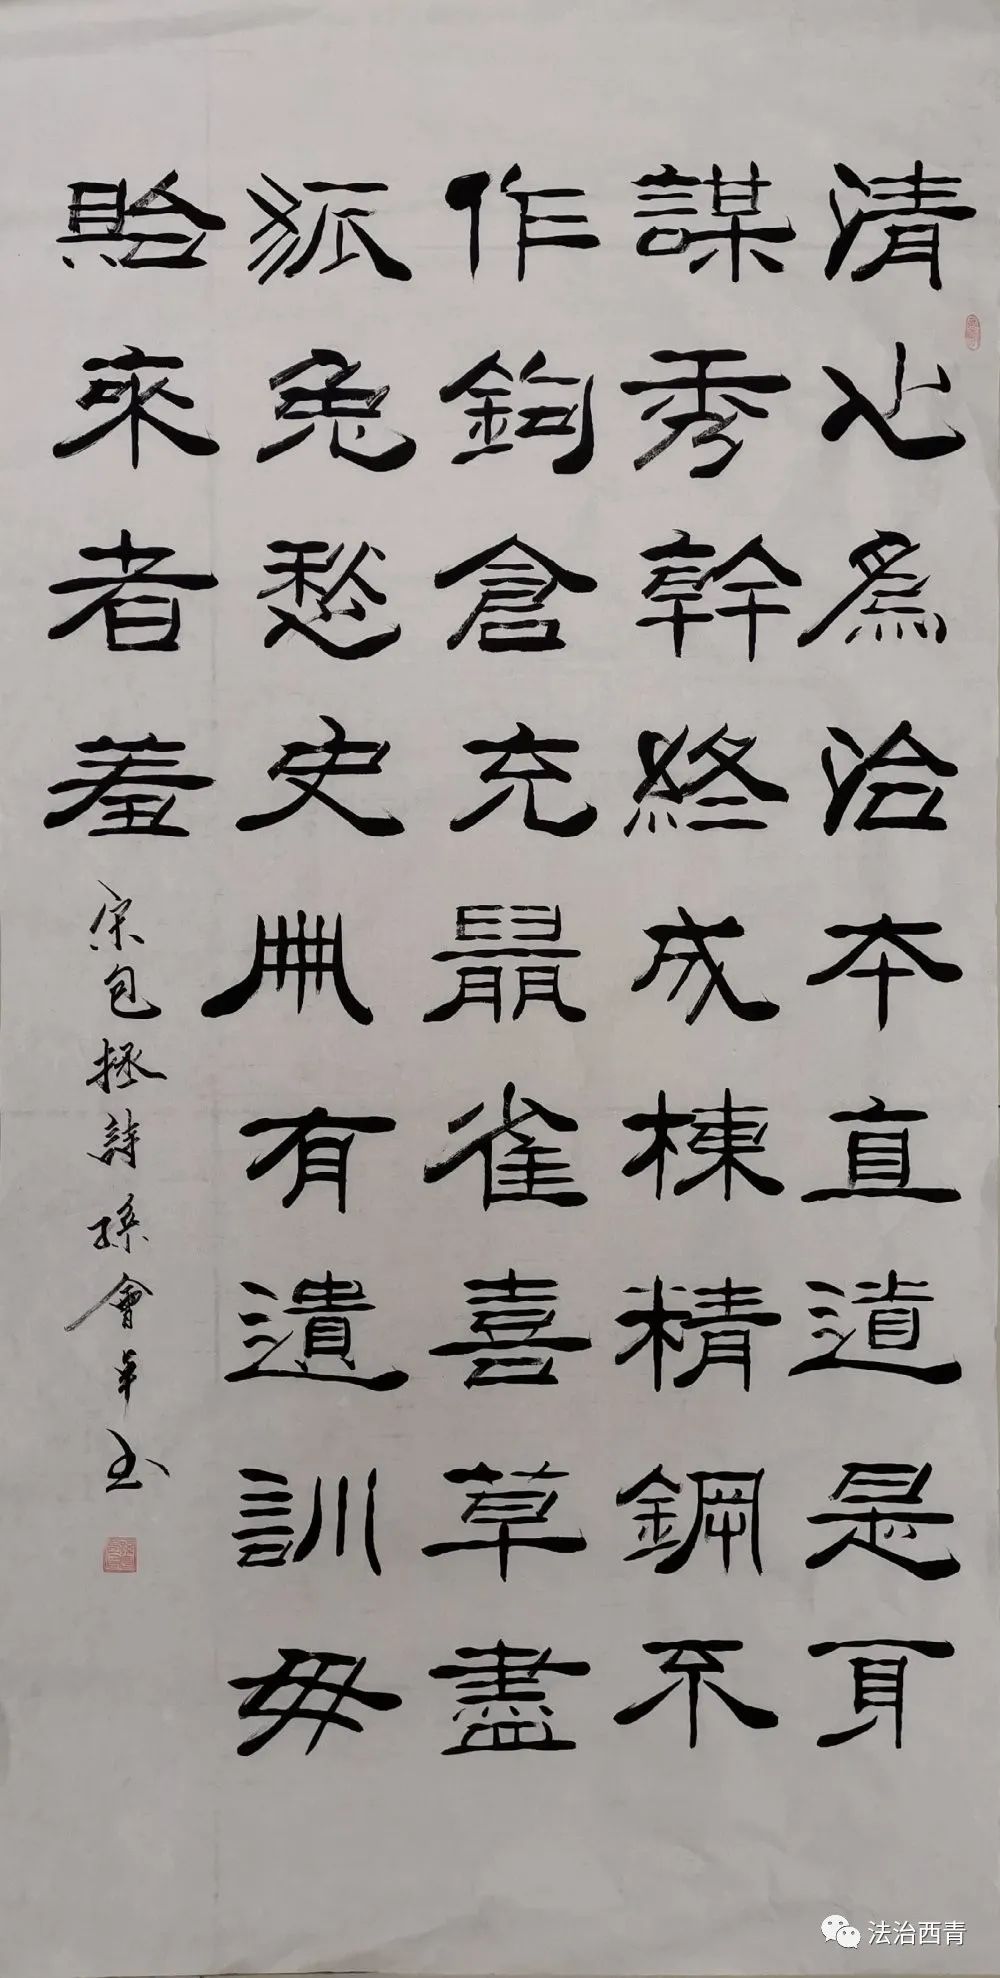 清心為治本直道是身
謀秀幹終成棟精鋼不
作鉤倉充鼠雀喜草盡
狐兔愁史冊有遺訓毋
貽來者羞
宋包拯詩孫會書
法治西青